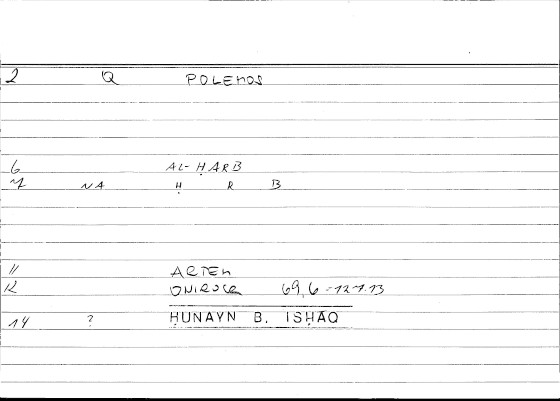 2 Q POLEMOS
6 AL-ḤARB
7 NA Ḥ R B
11 ARTEM
12 ONIROCR 69,6 = 127.13
14 ? ḤUNAYN B. ISḤAQ